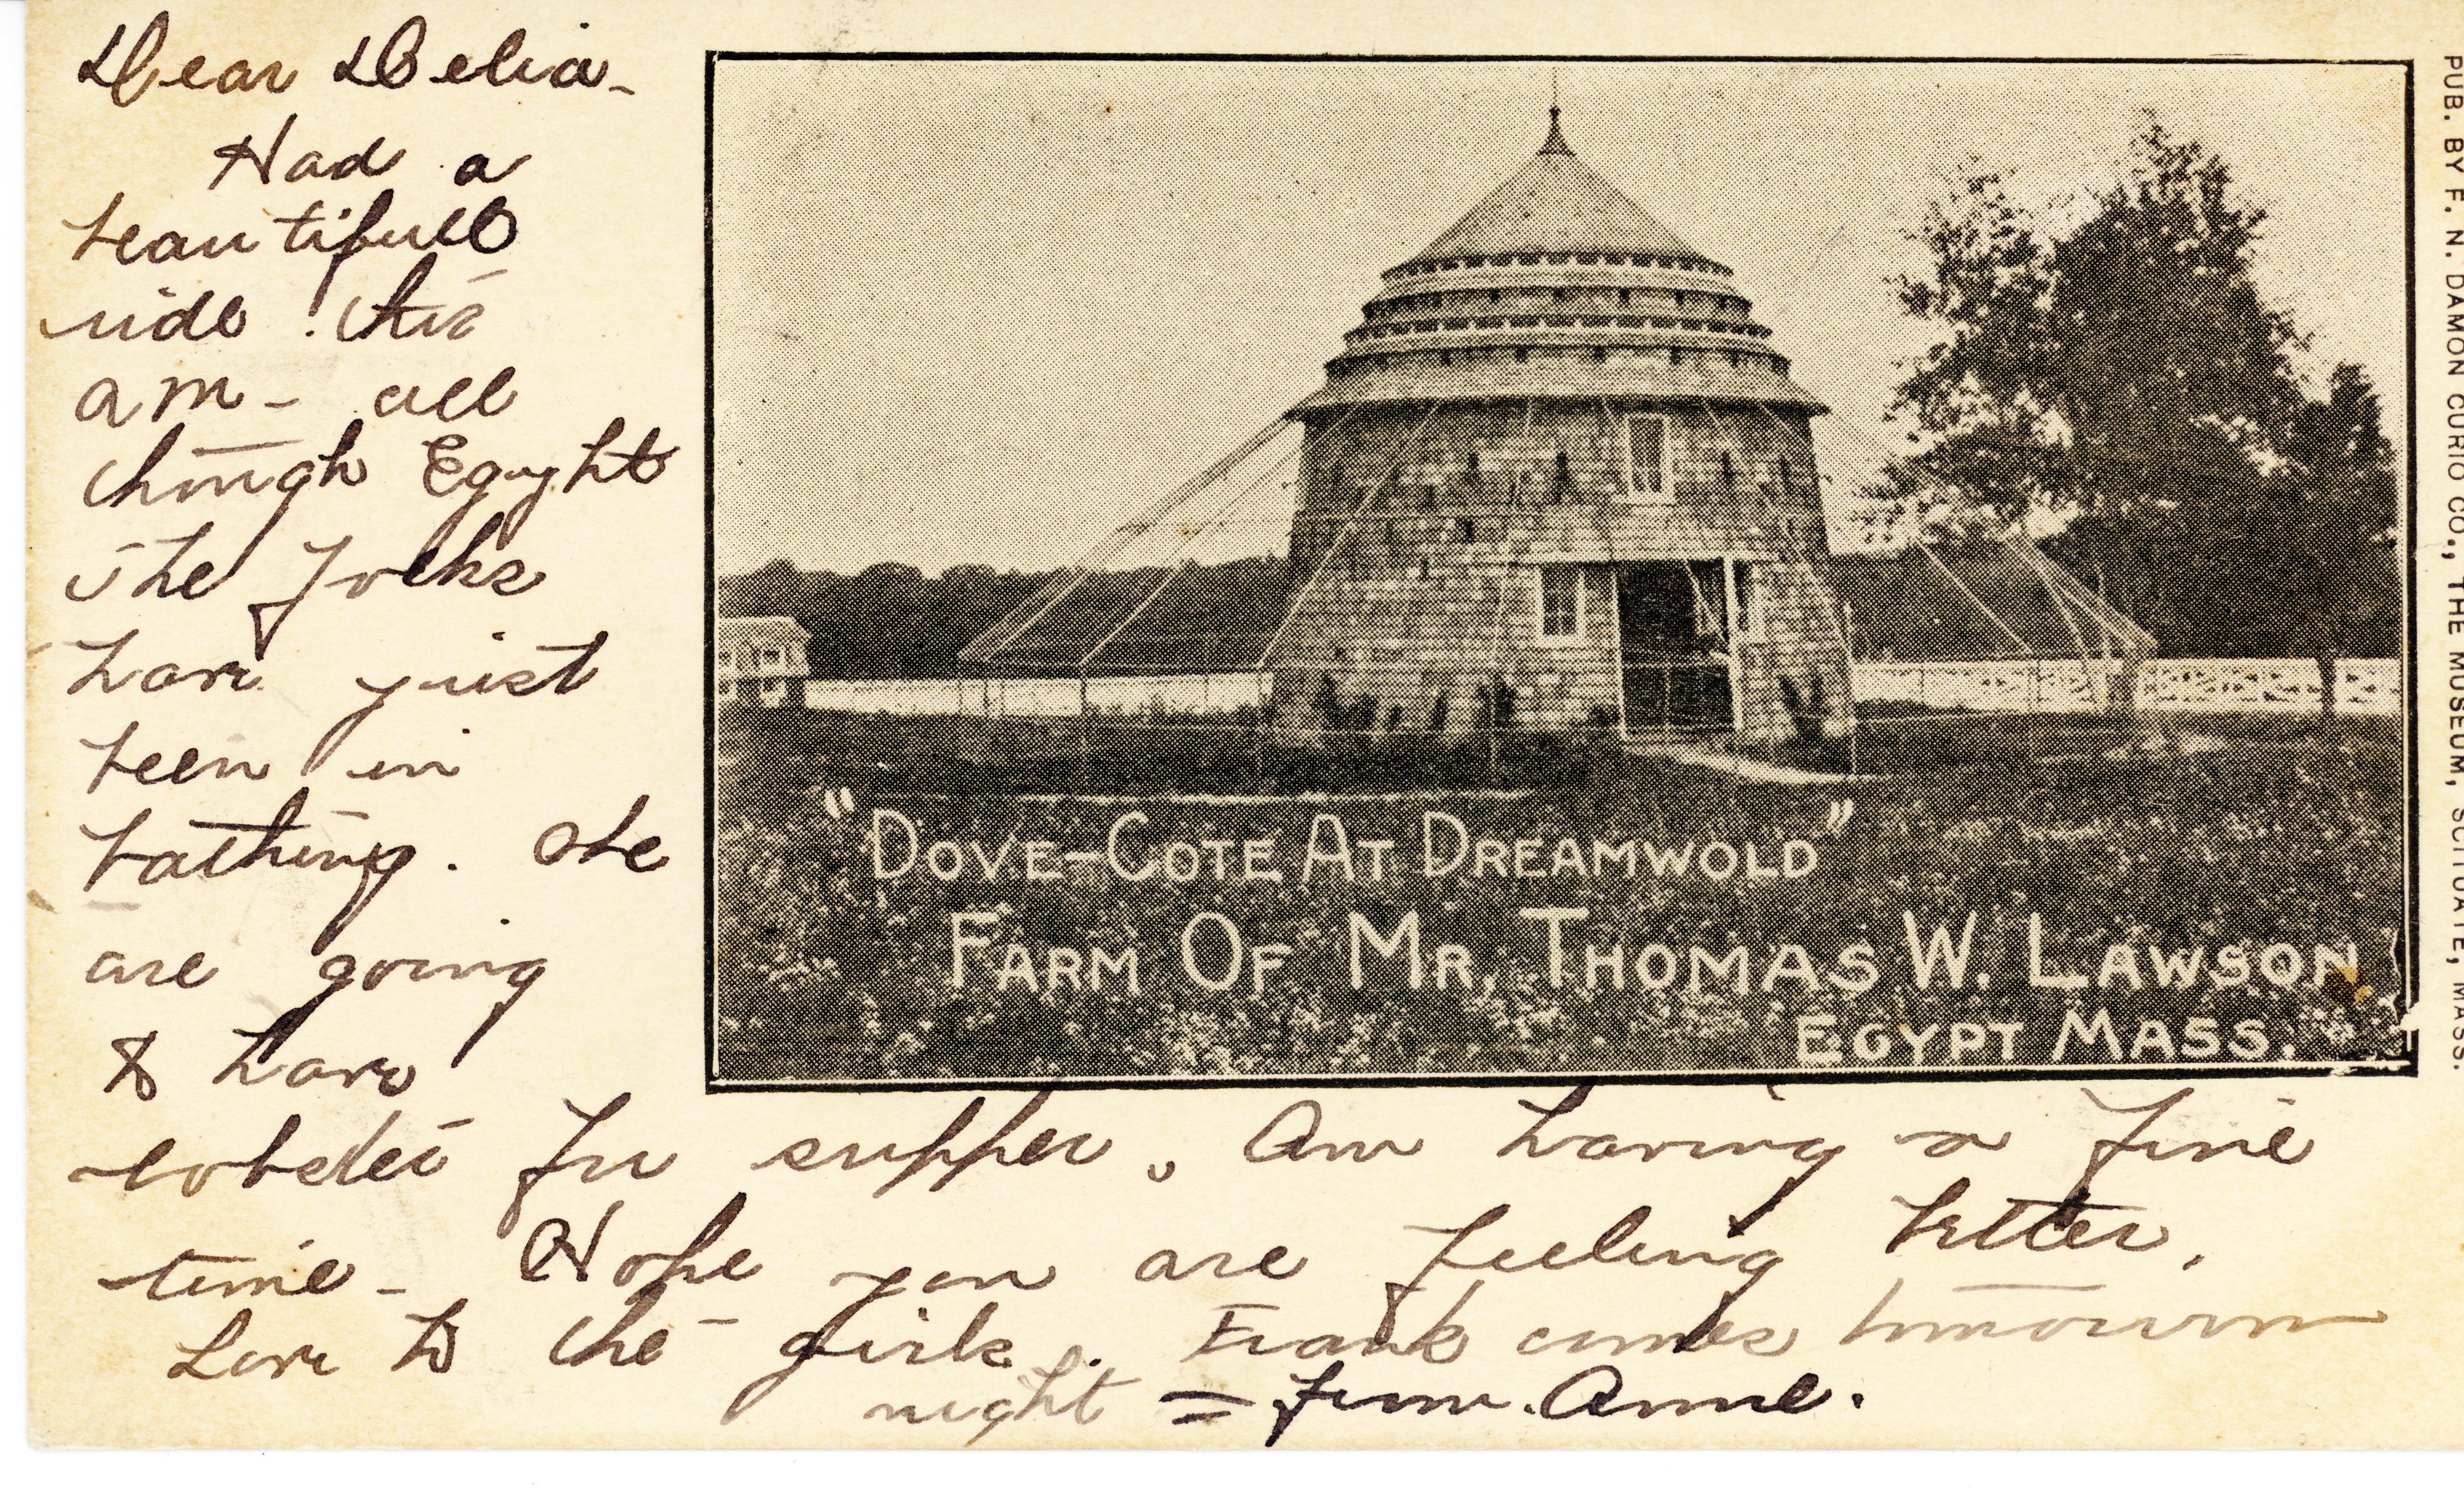 Dear Delia -
Had a
beautiful
ride this
am - all
through Egypt
The folks
have just
been in
bathing. We
are going
to have
lobster for supper. Am having a fine
time - Hope you are feeling better.
Love to the girls. Frank comes tomorrow
night = from Anne.
"DOVE-COTE AT DREAMWOLD"
FARM OF MR. THOMAS W. LAWSON
EGYPT MASS.
PUB. BY F. N. DAMON CURIO CO., THE MUSEUM, SCITUATE, MASS.